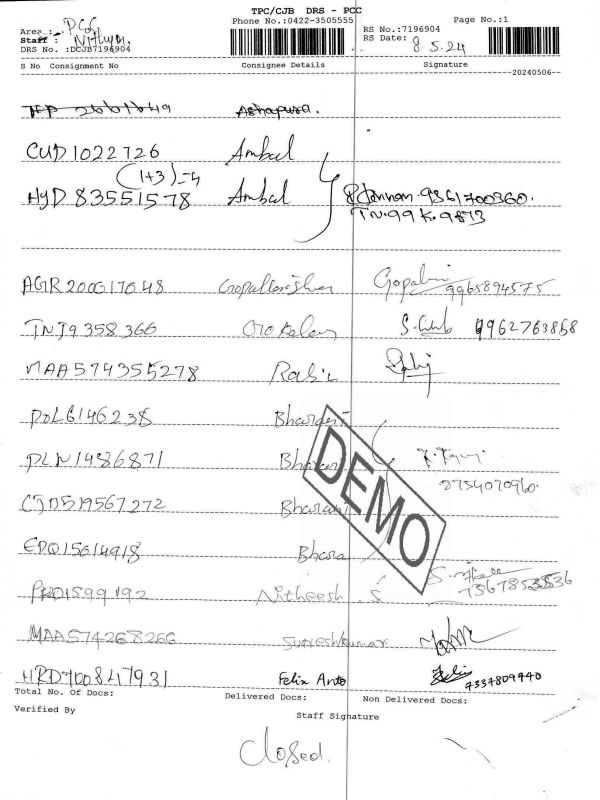 TPC/CJB DRS - PCC
Phone No.:0422-3505555
Page No.:1
Area : PCC
Staff : Nithya.
DRS No. :DCJB7196904
RS No.:7196904
RS Date: 8.5.24
S No Consignment No Consignee Details Signature
20240506
Ashapura.
CUD1022726 Ambal
(1+3)=4
HYD 83551578 Ambal P. Kannan. 9361700360.
TN.99 K.9873
AGR200017048 Gopalkrishnan Gopal 9965894575
TNJ9358366 9962763868
MAA574355278
POL6146238 Bharani
PLN1486871 Bharani
2754070960.
CJD519567272 Bharani
EDQ15614918 Bhara
PRO1599192 Nitheesh .S
MAA574268266 Sureshkumar
HRD700847931 Felix Anto Felix
7337809440
DEMO
Total No. of Docs: Delivered Docs: Non Delivered Docs:
Verified By Staff Signature
Closed.